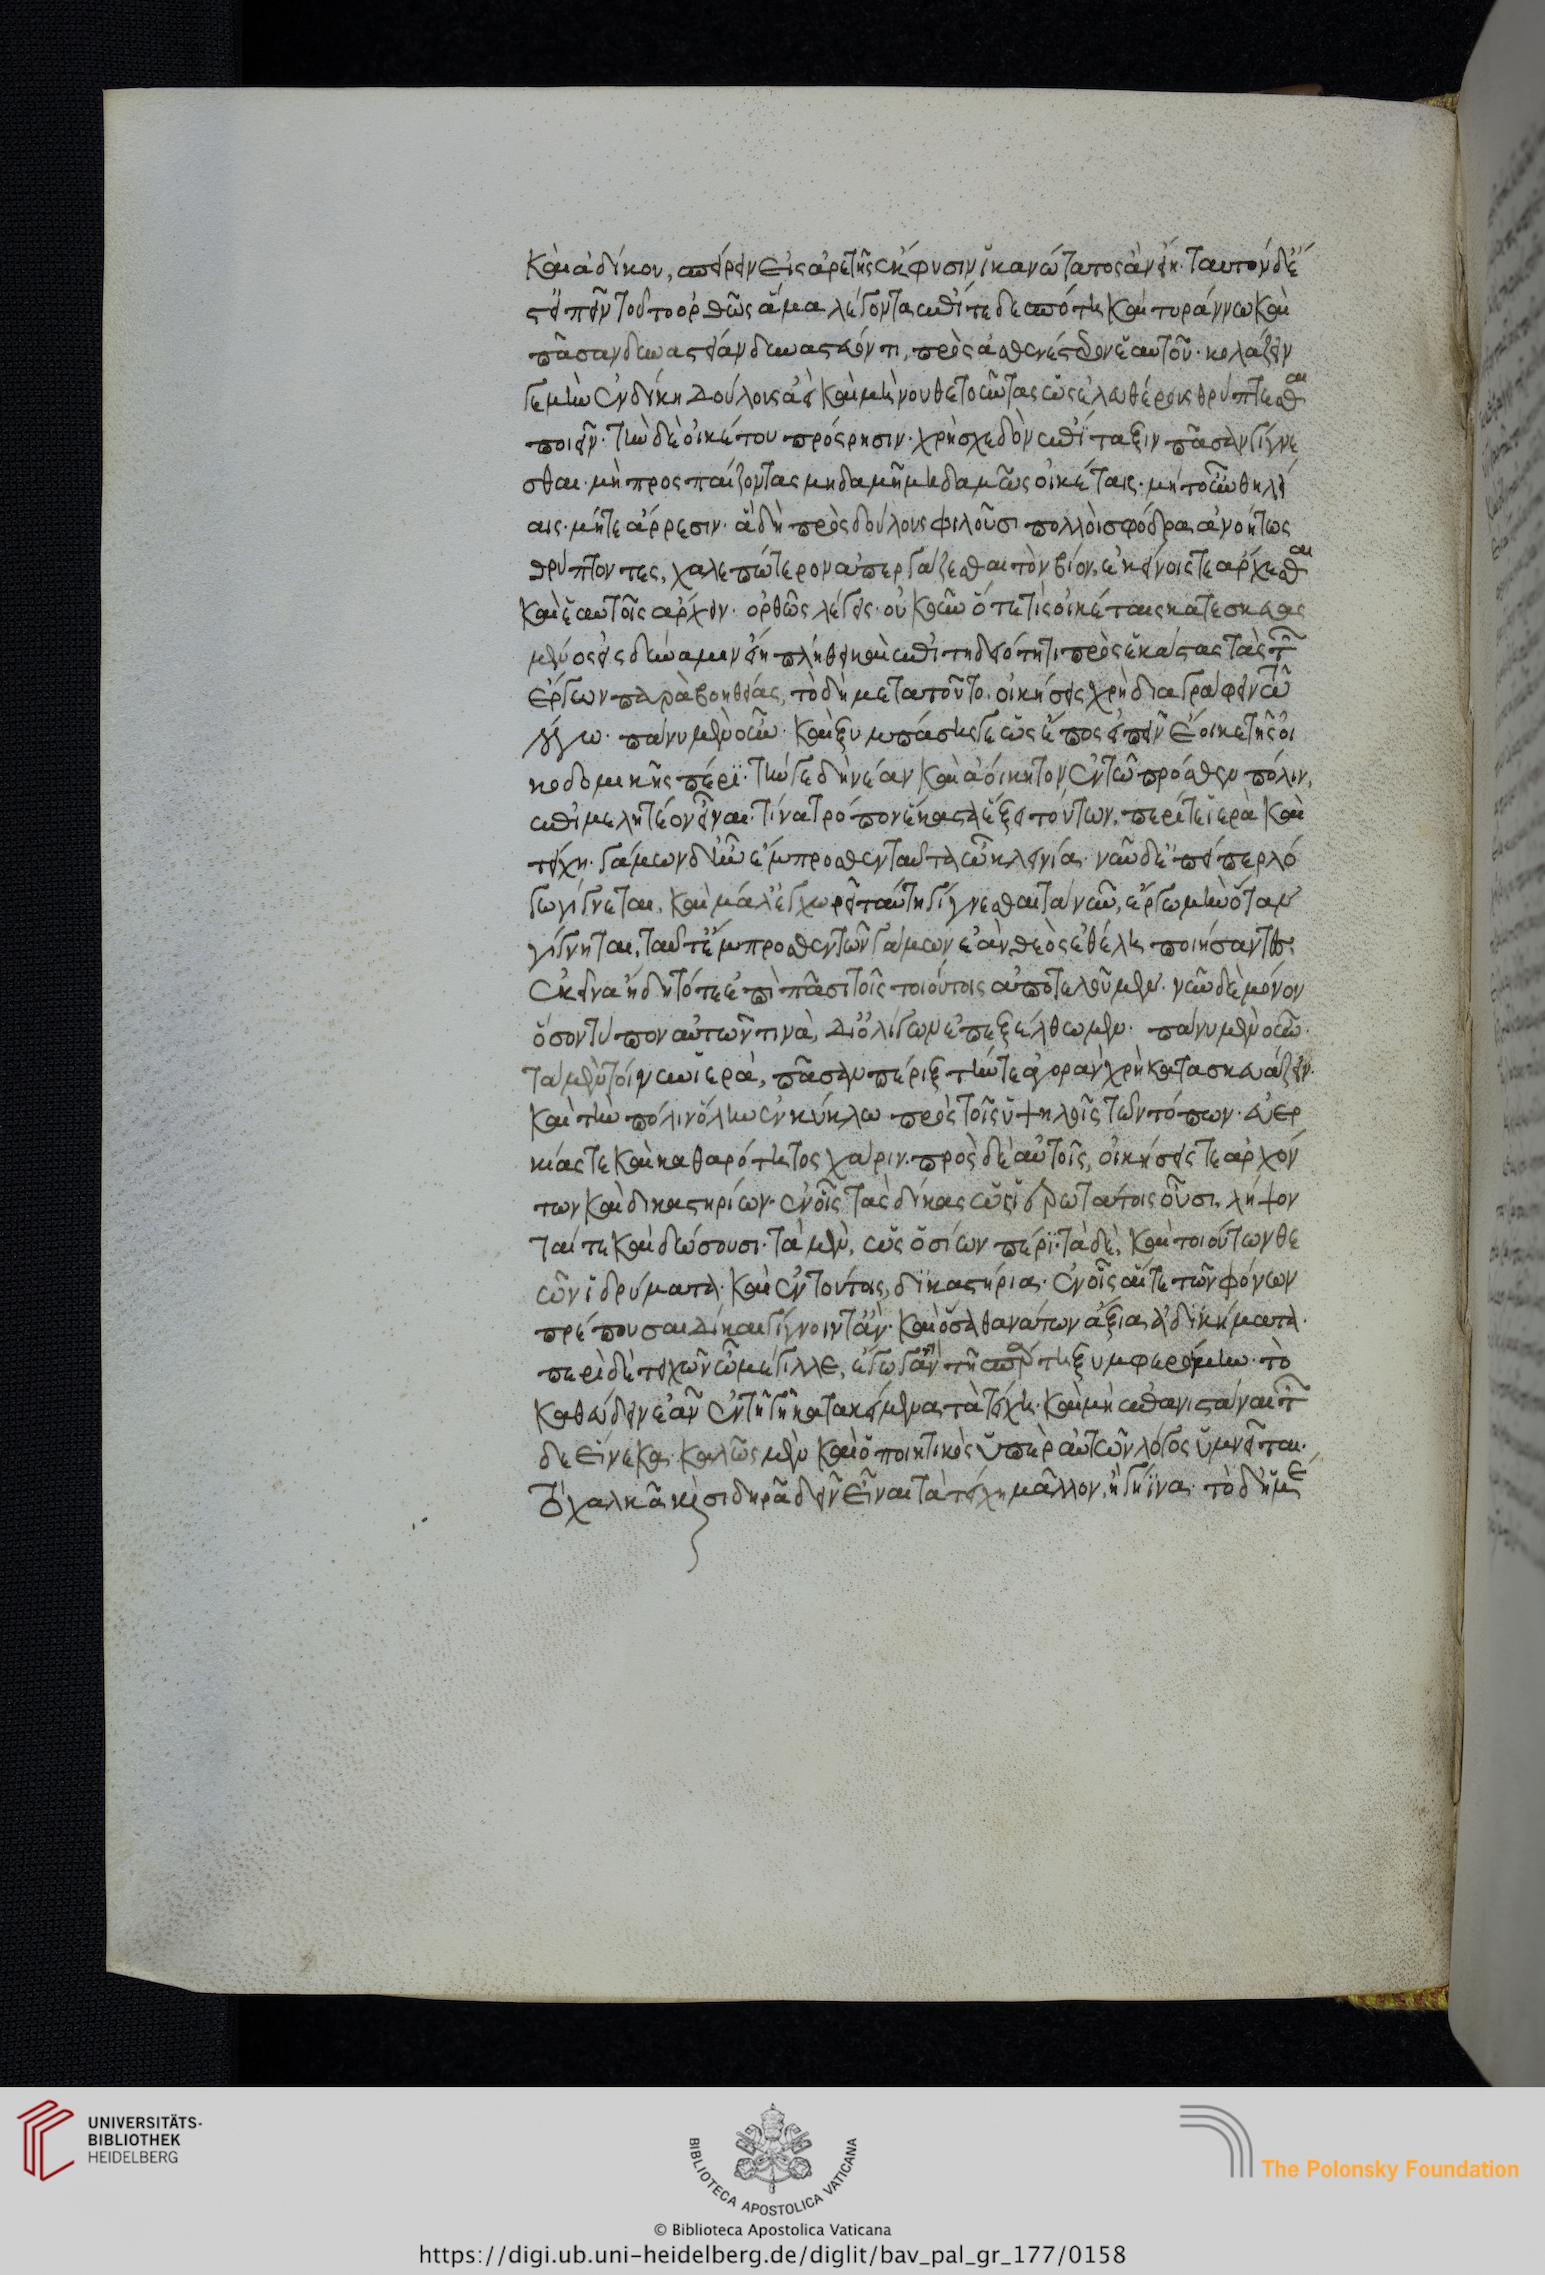 καὶ ἀδίκου, σπείρειν εἰς ἀρετῆς ἔκφυσιν ἱκανώτατος ἂν εἴη. ταυτὸν δὲ
ἔστ' εἰπεῖν τοῦτο ὀρθῶς ἅμα λέγοντα ἐπί τε δεσπότῃ καὶ τυράννῳ καὶ
πᾶσαν δυναστείαν δυναστεύοντι, πρὸς ἀσθενέστερον ἑαυτοῦ. κολάζειν
γε μὴν ἐν δίκῃ δούλους ἀεὶ καὶ μὴ νουθετοῦντας ὡς ἐλευθέρους θρύπτεσθαι
ποιεῖν. τὴν δὲ οἰκέτου πρόσρησιν. χρὴ σχεδὸν ἐπίταξιν πᾶσαν γίγνε
σθαι. μὴ προσπαίζοντας μηδαμῇ μηδαμῶς οἰκέταις. μήτ' οὖν θηλεί
αις. μήτε ἄρρεσιν. ἃ δὴ πρὸς δούλους φιλοῦσι πολλοὶ σφόδρα ἀνοήτως
θρύπτοντες, χαλεπώτερον ἀπεργάζεσθαι τὸν βίον, ἐκείνοις τε ἄρχεσθαι
καὶ ἑαυτοῖς ἄρχειν. ὀρθῶς λέγεις. οὐκοῦν ὅτε τις οἰκέταις κατεσκευασ
μένος εἰς δύναμιν εἴη πλήθει καὶ ἐπιτηδειότητι πρὸς ἑκάστας τὰς τῶν
ἔργων παραβοηθείας, τὸ δὴ μετὰ τοῦτο. οἰκήσεις χρὴ διαγράφειν τῷ
λόγῳ. πάνυ μὲν οὖν. καὶ ξυμπάσης γε ὡς ἔπος εἰπεῖν ἔοικε τῆς οἰ
κοδομικῆς πέρι. τήν γε δὴ νέαν καὶ ἀοίκητον ἐν τῷ πρόσθεν πόλιν,
ἐπιμελητέον εἶναι. τίνα τρόπον ἕκαστα ἕξει τούτων. περί τε ἱερὰ καὶ
τείχη. γάμων δ' ἦν ἔμπροσθεν ταῦτα ὦ κλεινία. νῦν δ' ἐπείπερ λό
γῳ γίγνεται, καὶ μάλ' ἐγχωρεῖ ταύτῃ γίγνεσθαι τὰ νῦν, ἔργῳ μὴν ὅταν
γίγνηται, ταῦτ' ἔμπροσθεν τῶν γάμων ἐὰν θεὸς ἐθέλῃ ποιήσαντες
ἐκεῖνα ἤδη τότε ἐπὶ πᾶσι τοῖς τοιούτοις ἀποτελοῦμεν. νῦν δὲ μόνον
ὅσον τύπον αὐτῶν τινὰ, δι' ὀλίγων ἐπεξέλθωμεν. πάνυ μὲν οὖν.
τὰ μὲν τοίνυν ἱερὰ, πᾶσαν πέριξ τήν τε ἀγορὰν χρὴ κατασκευάζειν.
καὶ τὴν πόλιν ὅλην ἐν κύκλῳ πρὸς τοῖς ὑψηλοῖς τῶν τόπων. εὐερ
κίας τε καὶ καθαρότητος χάριν. πρὸς δὲ αὐτοῖς, οἰκήσεις τε ἀρχόν
των καὶ δικαστηρίων. ἐν οἷς τὰς δίκας ὡς ἱερωτάτοις οὖσι, λήψον
ταί τε καὶ δώσουσι. τὰ μὲν, ὡς ὁσίων πέρι. τὰ δὲ, καὶ τοιούτων θε
ῶν ἱδρύματα. καὶ ἐν τούτοις, δικαστήρια. ἐν οἷς αἵ τε τῶν φόνων
πρέπουσαι δίκαι γίγνοιντ' ἄν. καὶ ὅσα θανάτων ἄξια ἀδικήματα.
περὶ δὲ τειχῶν ὦ μέγιλλε, ἔγωγ' ἂν τῇ σπάρτῃ ξυμφεροίμην. τὸ
καθεύδειν ἐᾶν ἐν τῇ γῇ κατακείμενα τὰ τείχη. καὶ μὴ ἐπανιστάναι τῶν
δε εἵνεκα. καλῶς μὲν καὶ ὁ ποιητικὸς ὑπὲρ αὐτῶν λόγος ὑμνεῖται.
τὸ χαλκᾶ καὶ σιδηρᾶ δεῖν εἶναι τὰ τείχη μᾶλλον, ἢ γήϊνα. τὸ δ' ἡμέ
UNIVERSITÄTS-
BIBLIOTHEK
HEIDELBERG
BIBLIOTECA APOSTOLICA VATICANA
© Biblioteca Apostolica Vaticana
The Polonsky Foundation
https://digi.ub.uni-heidelberg.de/diglit/bav_pal_gr_177/0158